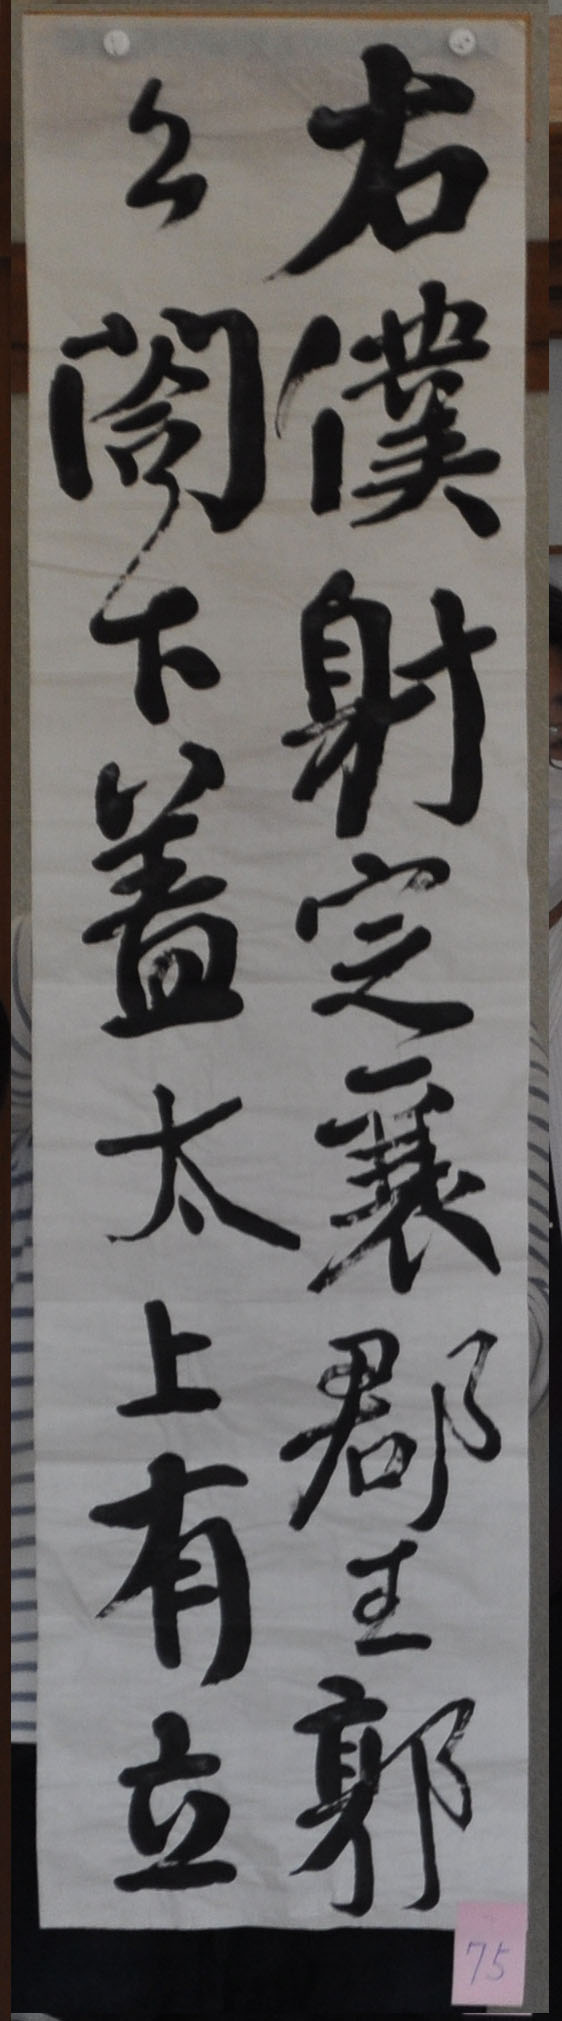 右僕射定襄郡王郭
公閤下蓋太上有立
75